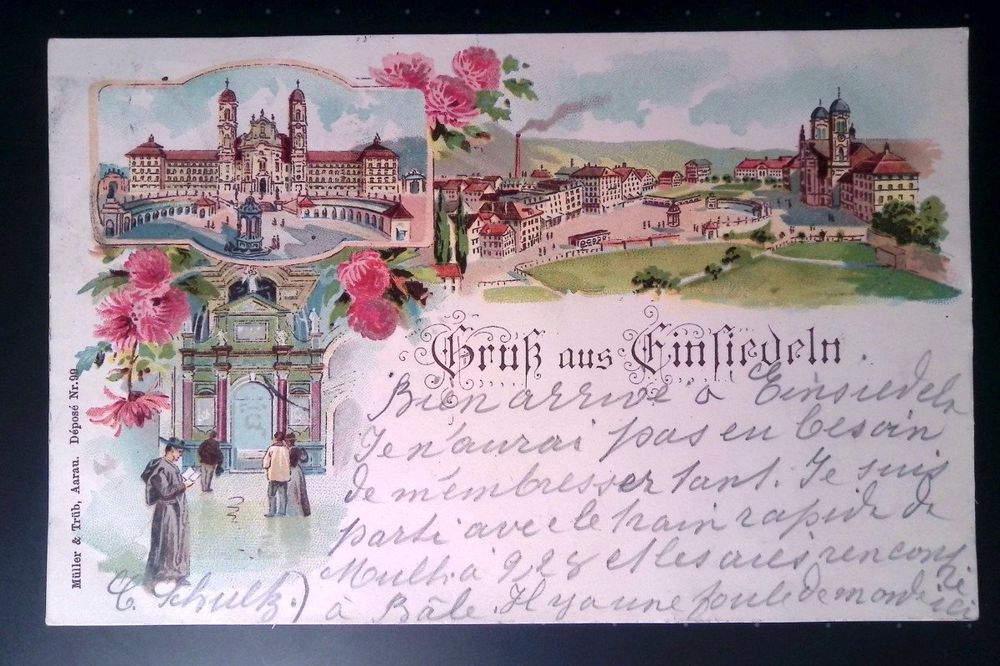 Gruß aus Einsiedeln.
Bien arrivé à Einsiedeln
Je n'aurai pas eu besoin
de m'embresser tant. Je suis
parti avec le train rapide de
Mulh. à 9.28 et les ai es rencontré
à Bâle. Il y a une foule de monde ici
C. Schultz.)
Müller & Trüb, Aarau. Déposé Nr. 99